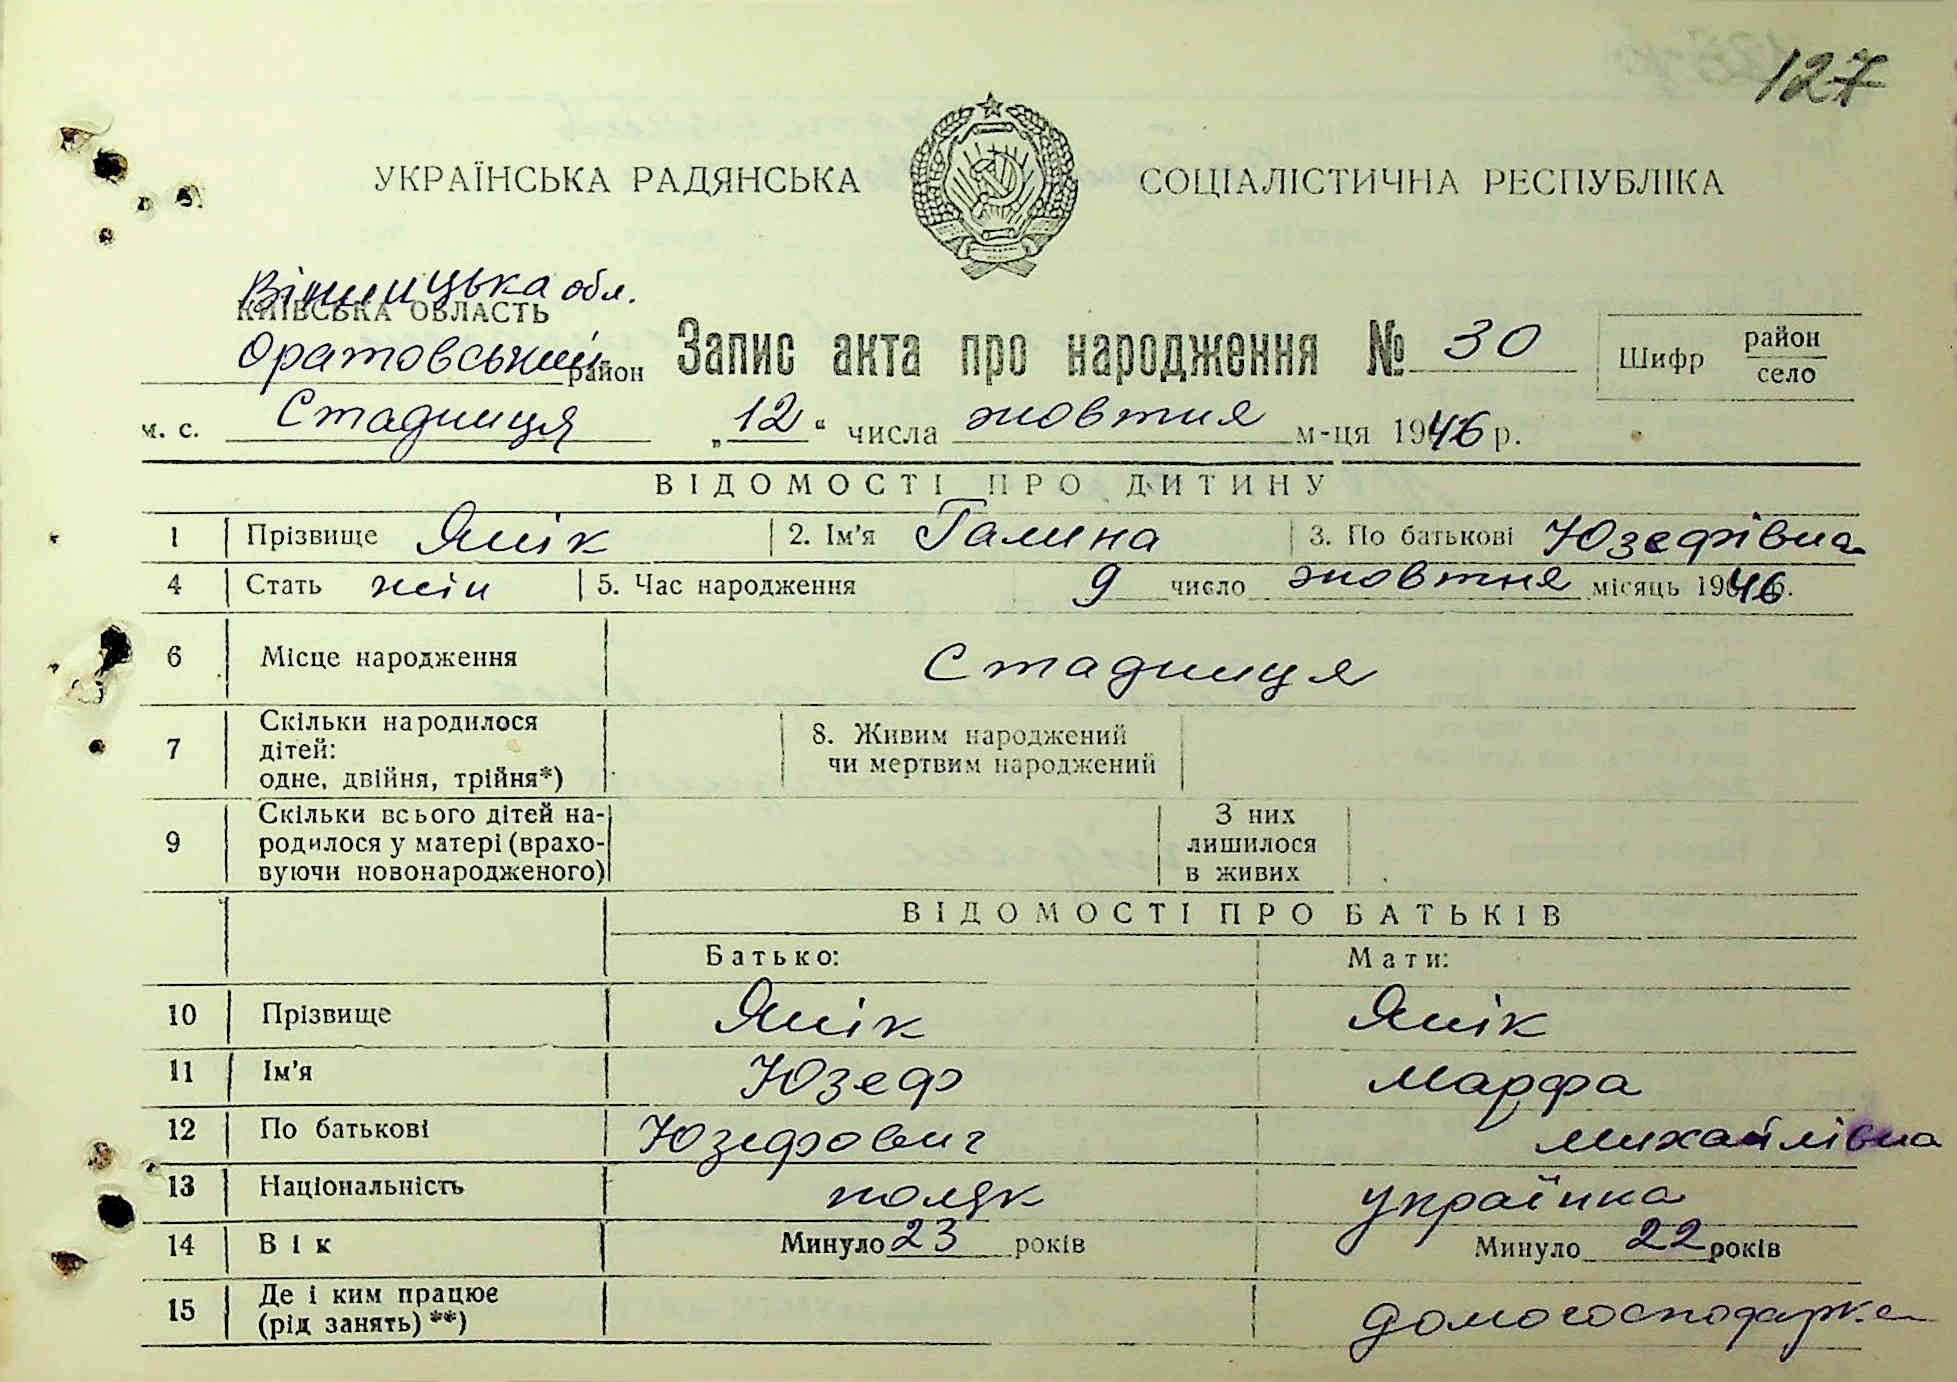 127
УКРАЇНСЬКА РАДЯНСЬКА СОЦІАЛІСТИЧНА РЕСПУБЛІКА
Вінницька обл.
КИЇВСЬКА ОБЛАСТЬ
Оратовський район Запис акта про народження № 30 Шифр район село
м. с. Стадниця „12“ числа жовтня м-ця 1946 р.
ВІДОМОСТІ ПРО ДИТИНУ
1 Прізвище Янік 2. Ім'я Галина 3. По батькові Юзефівна
4 Стать жін 5. Час народження 9 число жовтня місяць 1946 р.
6 Місце народження Стадниця
7 Скільки народилося дітей: одне, двійня, трійня*) 8. Живим народжений чи мертвим народжений
9 Скільки всього дітей народилося у матері (враховуючи новонародженого) З них лишилося в живих
ВІДОМОСТІ ПРО БАТЬКІВ
Батько: Мати:
10 Прізвище Янік Янік
11 Ім'я Юзеф Марфа
12 По батькові Юзефович Михайлівна
13 Національність поляк українка
14 Вік Минуло 23 років Минуло 22 років
15 Де і ким працює (рід занять) **) домогосподарка